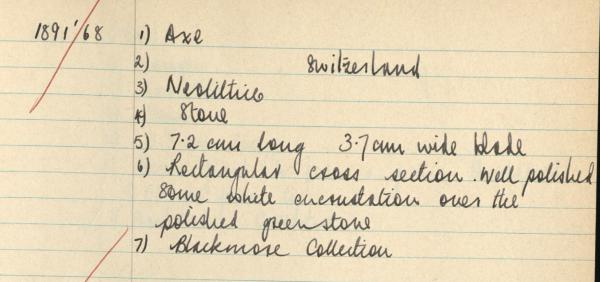 1891'68 1) Axe
2) Switzerland
3) Neolithic
4) Stone
5) 7.2 cm long 3.7 cm wide blade
6) Rectangular cross section. Well polished
some white encrustation over the
polished greenstone
7) Blackmore Collection